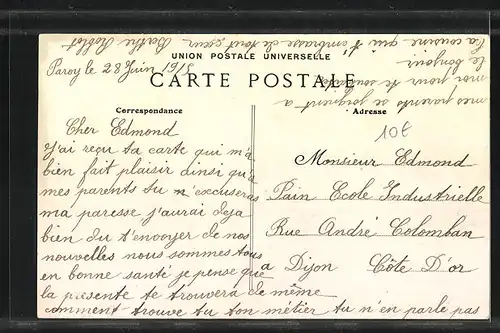 Paroy le 28 Juin 1918
UNION POSTALE UNIVERSELLE
CARTE POSTALE
Correspondance
Cher Edmond
J'ai reçu ta carte qui m'a
bien fait plaisir dinsi qu'a
mes parents tu n'excuseras
ma paresse j'aurai deja
bien du t'envoyer de nos
nouvelles nous sommes tous
en bonne santé je pense que
la présente te trouvera de même
comment trouve tu ton métier tu n'en parle pas
mes parents se joignent a
moi pour te souhaiter
le bonjour
ta cousine qui t'embrasse de tout cœur Berthe
Adresse
10€
Monsieur Edmond
Pain Ecole Industrielle
Rue André Colomban
a Dijon Côte D'or